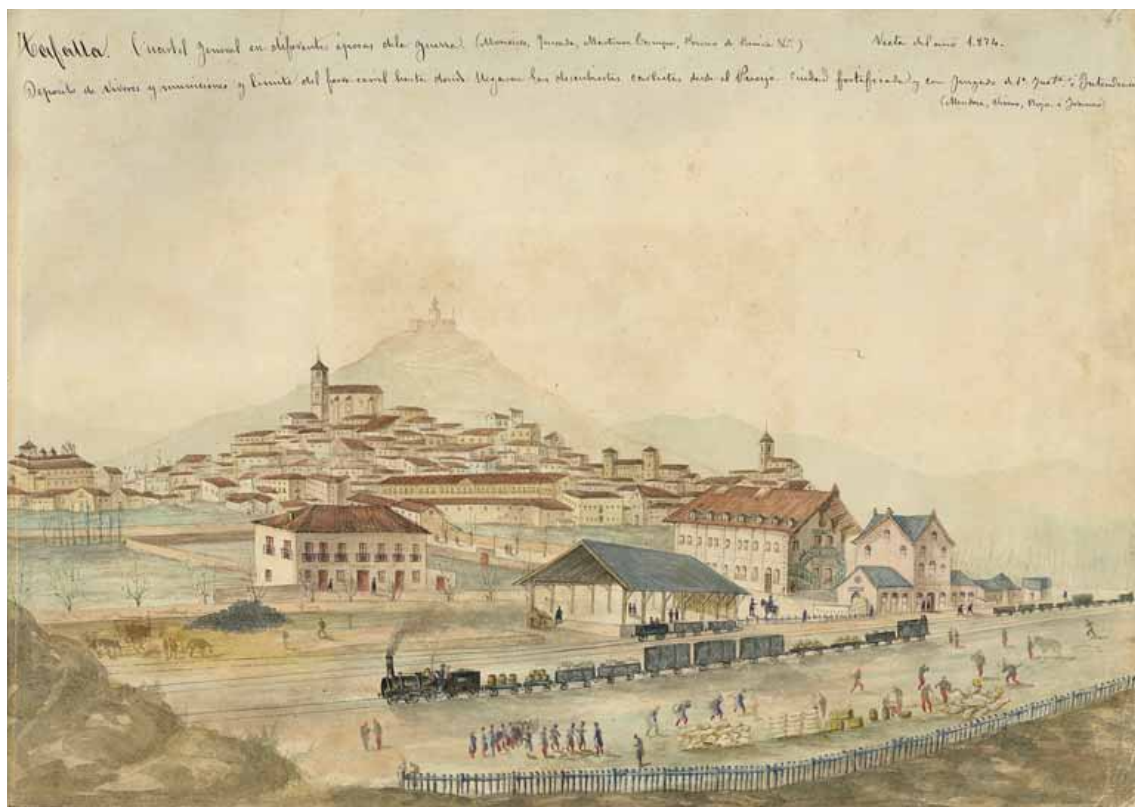 Tafalla. Cuartel general en diferentes épocas de la guerra. (Moriones, Quesada, Martinez Campos, Primo de Rivera &ª) Vista del año 1.874.
Deposito de viveres y municiones y limite del ferro-carril hasta donde llegaron las descubiertas carlistas desde el Pueyo. Ciudad fortificada y con Juzgado de 1ª Instª é Intendencia